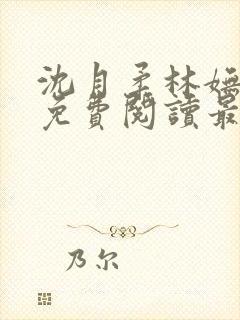 沈自柔林嫵
免費閱讀最
乃尔